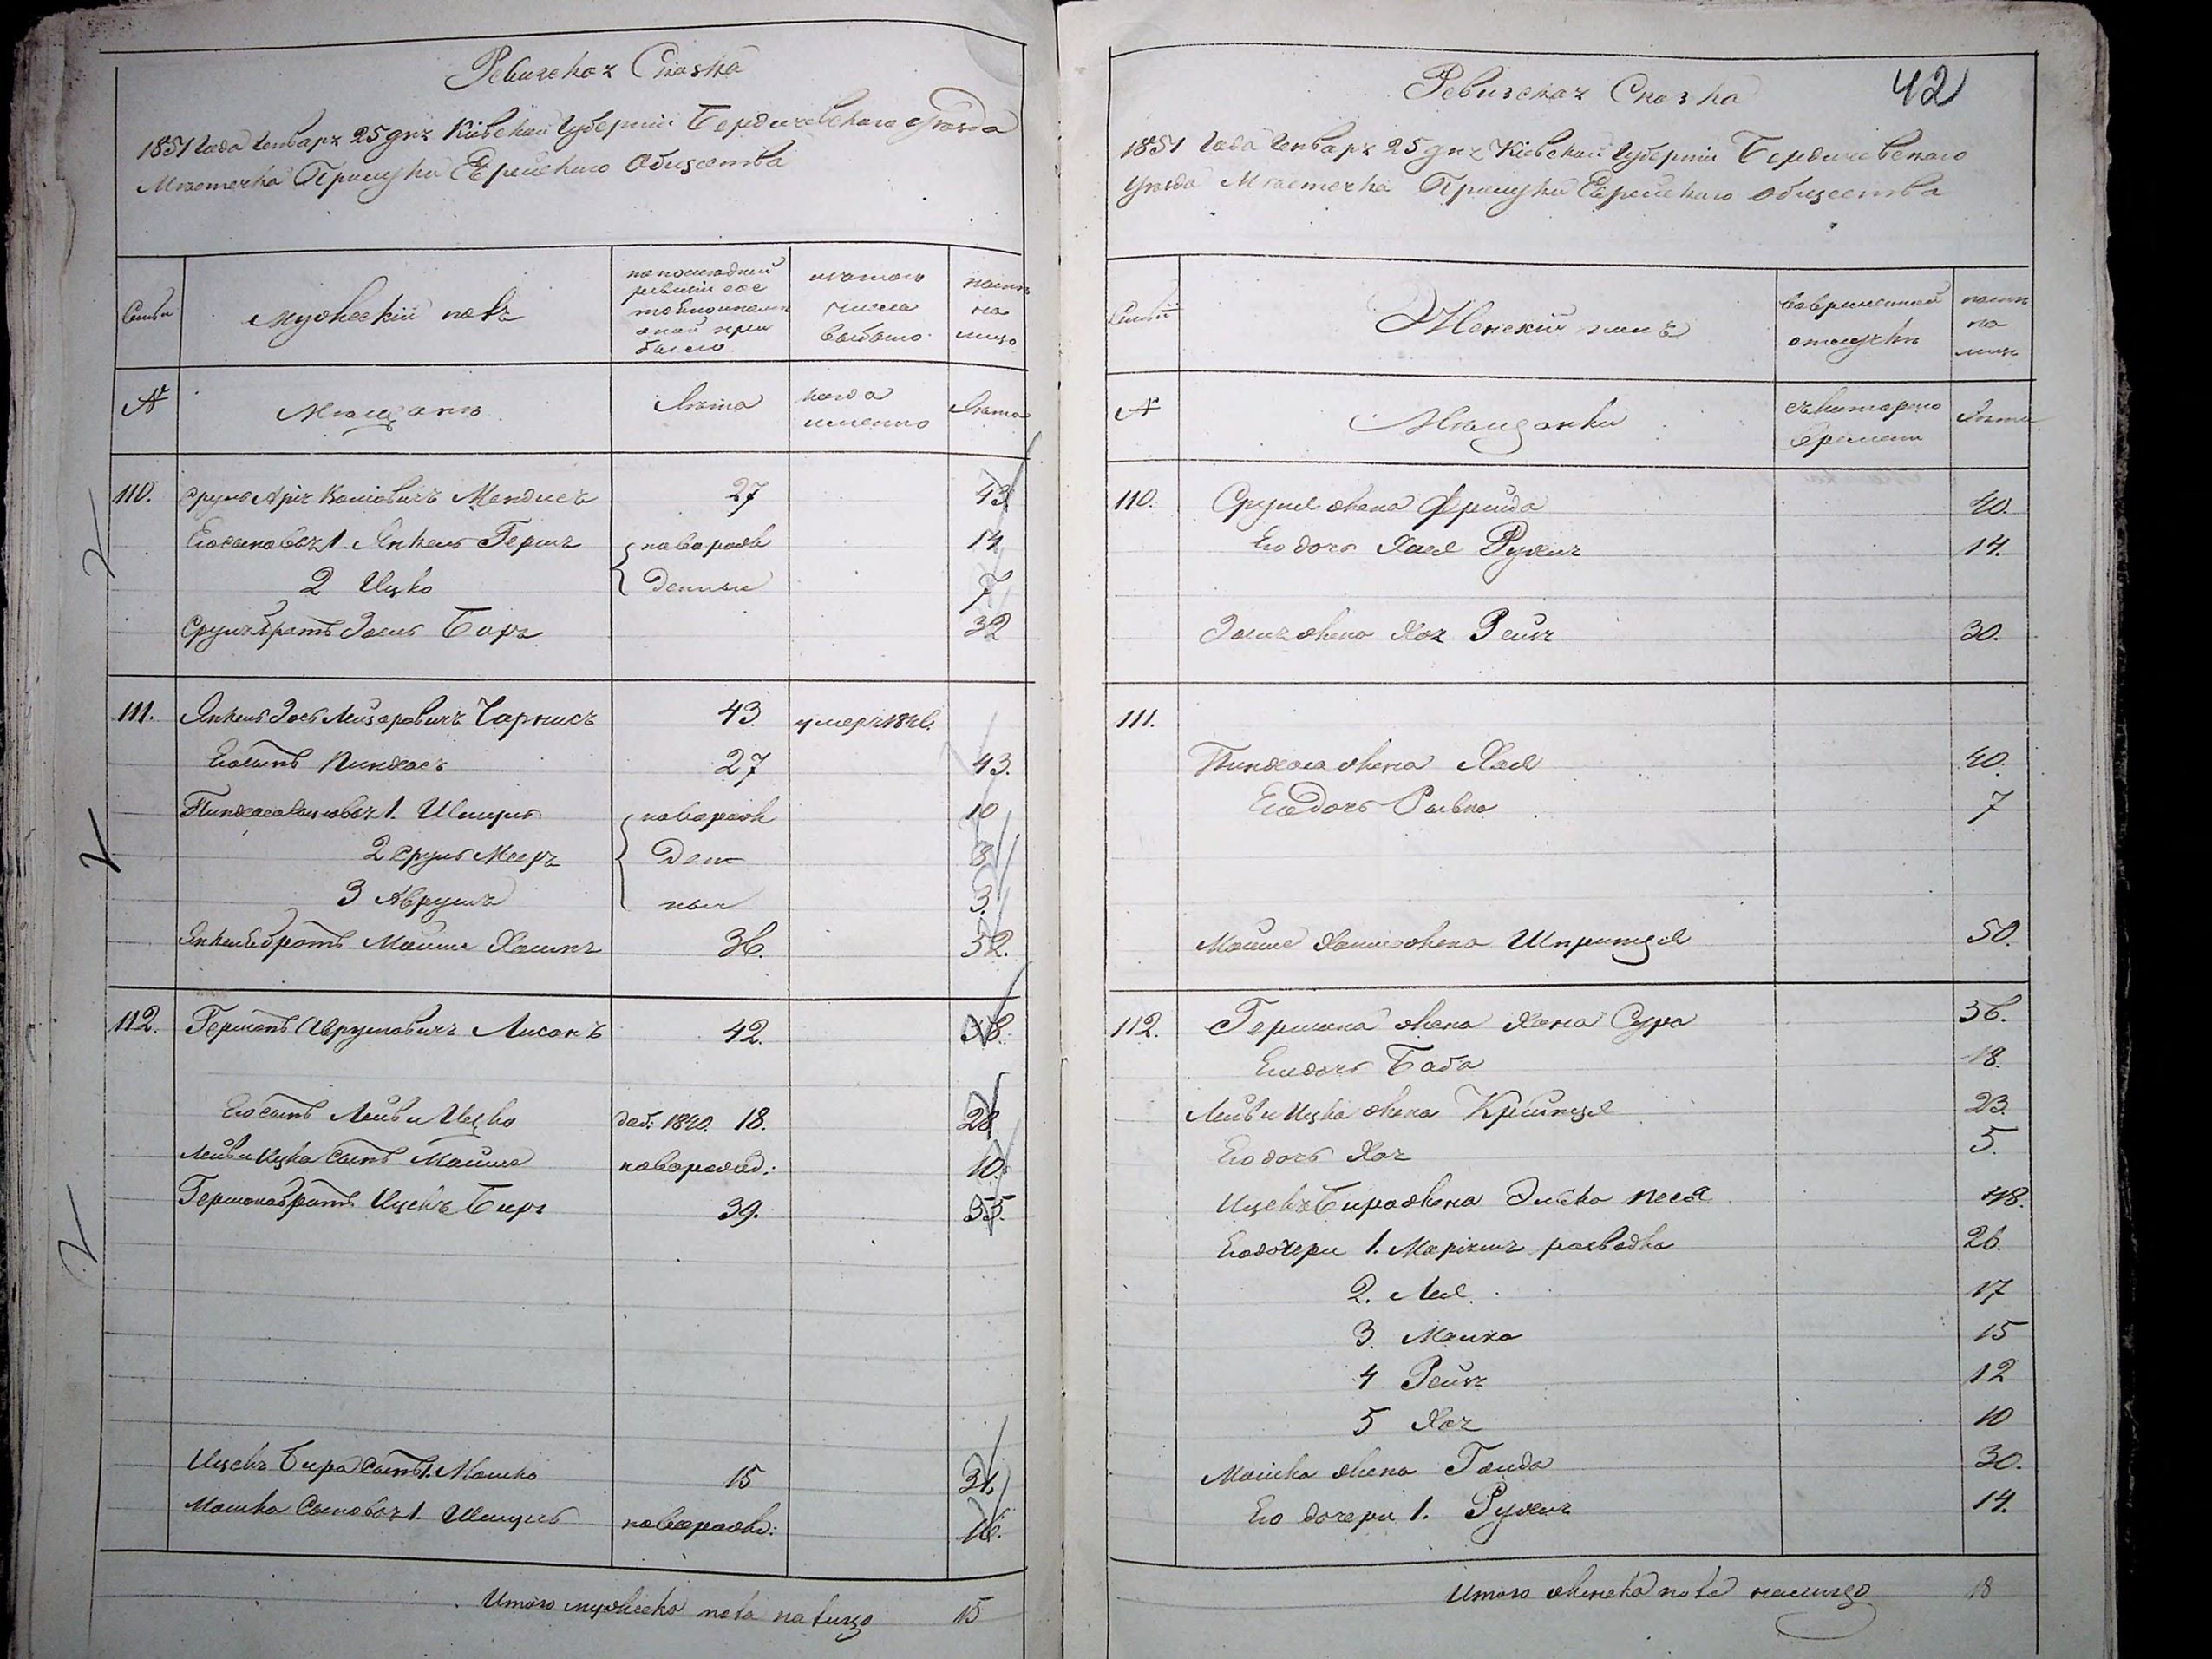 Ревизская Сказка
1851 Года Генваря 25 дня Кіевской Губерніи Бердичевскаго Уѣзда
Мѣстечка Прилуки Еврейскаго Общества
Семьи
Мужескій полъ
по последней
ревизіи сос
тояло и после
оной при
было
изъ того
числа
выбыло
ныне
на
лицо
№
Мѣщане
Лѣта
когда
именно
Лѣта
110. Сруль Арія Мендисъ 27 43
Его сыновья 1. Янкель Гершъ новорож 14
2 Ицко денные 7
Сруля братъ Зось Беръ 32
111. Янкель Зось Лейзеровичъ Чарнисъ 43. умеръ
Его сынъ Пинхасъ 27 43.
Пинхаса сыновья 1. Шмуль новорож 10
2 Сруль Мееръ ден 8
3 Аврумъ ные 3.
Янкеля братъ Мошко Хаимъ 36. 52.
112. Гершонъ Аврумовичъ Лисонъ 42. 58.
Его сынъ Лейви Ицко доб: 1840. 18. 28
Лейви Ицка сынъ Мойше новорожд: 10.
Гершона братъ Ицекъ Беръ 39. 55.
Ицекъ Бера сынъ 1. Мошко 15 31.
Мошка сыновья 1. Шмуль новорожд: 16.
Итого мужеска пола налицо 15
42
Ревизская Сказка
1851 Года Генваря 25 дня Кіевской Губерніи Бердичевскаго
Уѣзда Мѣстечка Прилуки Еврейскаго Общества
Семьи
Женскій полъ
во временной
отлучке
ныне
на
лицо
№
Мѣщанки
съ котораго
времени
Лѣта
110. Сруля жена Фрейда 40.
Его дочь Хая Рухля 14.
Зося жена Хая Рейзя 30.
111.
Пинхаса жена Хая 40.
Его дочь Ривка 7
Мойше Хаима жена Шпринця 50.
112. Гершона жена Хана Сура 56.
Его дочь Баба 18.
Лейви Ицка жена Крейнця 23.
Его дочь Хая 5.
Ицекъ Бера жена Элька Песя 48.
Его дочери 1. Маріямъ разводка 26.
2. Лея 17
3. Малка 15
4 Рейзя 12
5 Хая 10
Мошка жена Генда 30.
Его дочери 1. Рухля 14.
Итого женска пола налицо 18